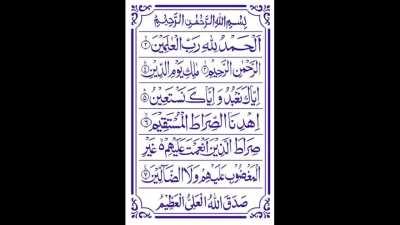 بِسْمِ اللهِ الرَّحْمٰنِ الرَّحِيْمِ
اَلْحَمْدُ لِلّٰهِ رَبِّ الْعٰلَمِيْنَ ۝٢
الرَّحْمٰنِ الرَّحِيْمِ ۝٣ مٰلِكِ يَوْمِ الدِّيْنِ ۝٤
اِيَّاكَ نَعْبُدُ وَ اِيَّاكَ نَسْتَعِيْنُ ۝٥
اِهْدِنَا الصِّرَاطَ الْمُسْتَقِيْمَ ۝٦
صِرَاطَ الَّذِيْنَ اَنْعَمْتَ عَلَيْهِمْ ۝ غَيْرِ
الْمَغْضُوْبِ عَلَيْهِمْ وَلَا الضَّآلِّيْنَ ۝٧
صَدَقَ اللهُ الْعَلِيُّ الْعَظِيْمُ